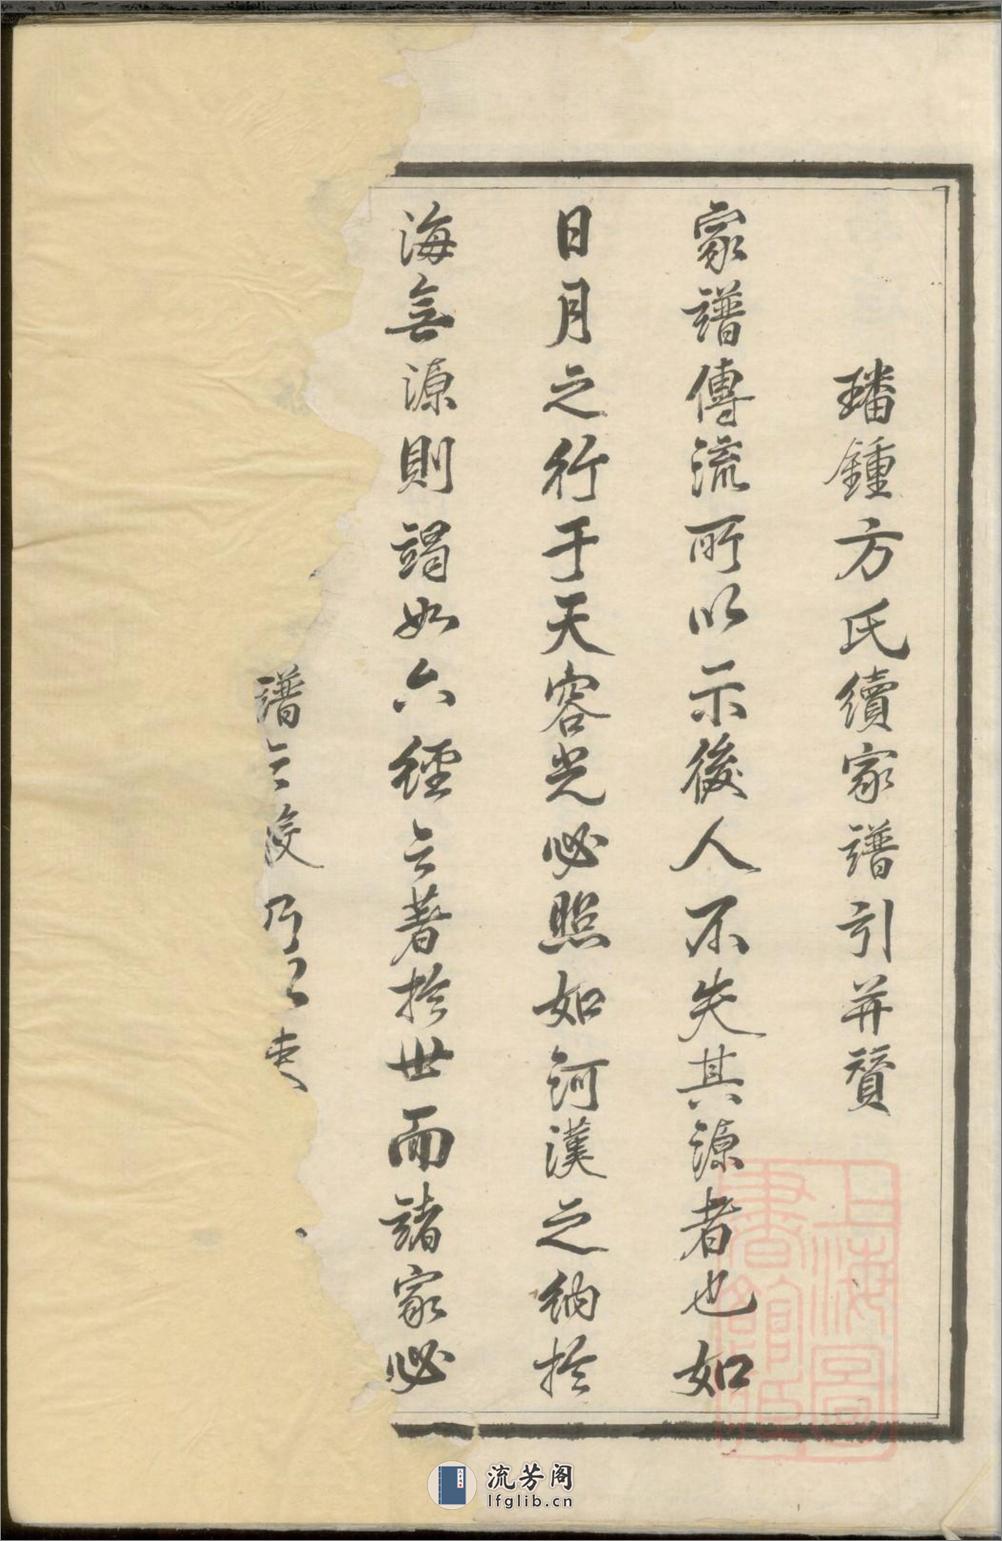 璠鍾方氏續家譜引并贊
家譜傳流所以示後人不失其源者也如
日月之行于天容光必照如河漢之納於
海無源則竭如六經之著於世而諸家必
譜之後乃
上海圖書館藏
流芳阁
lfglib.cn